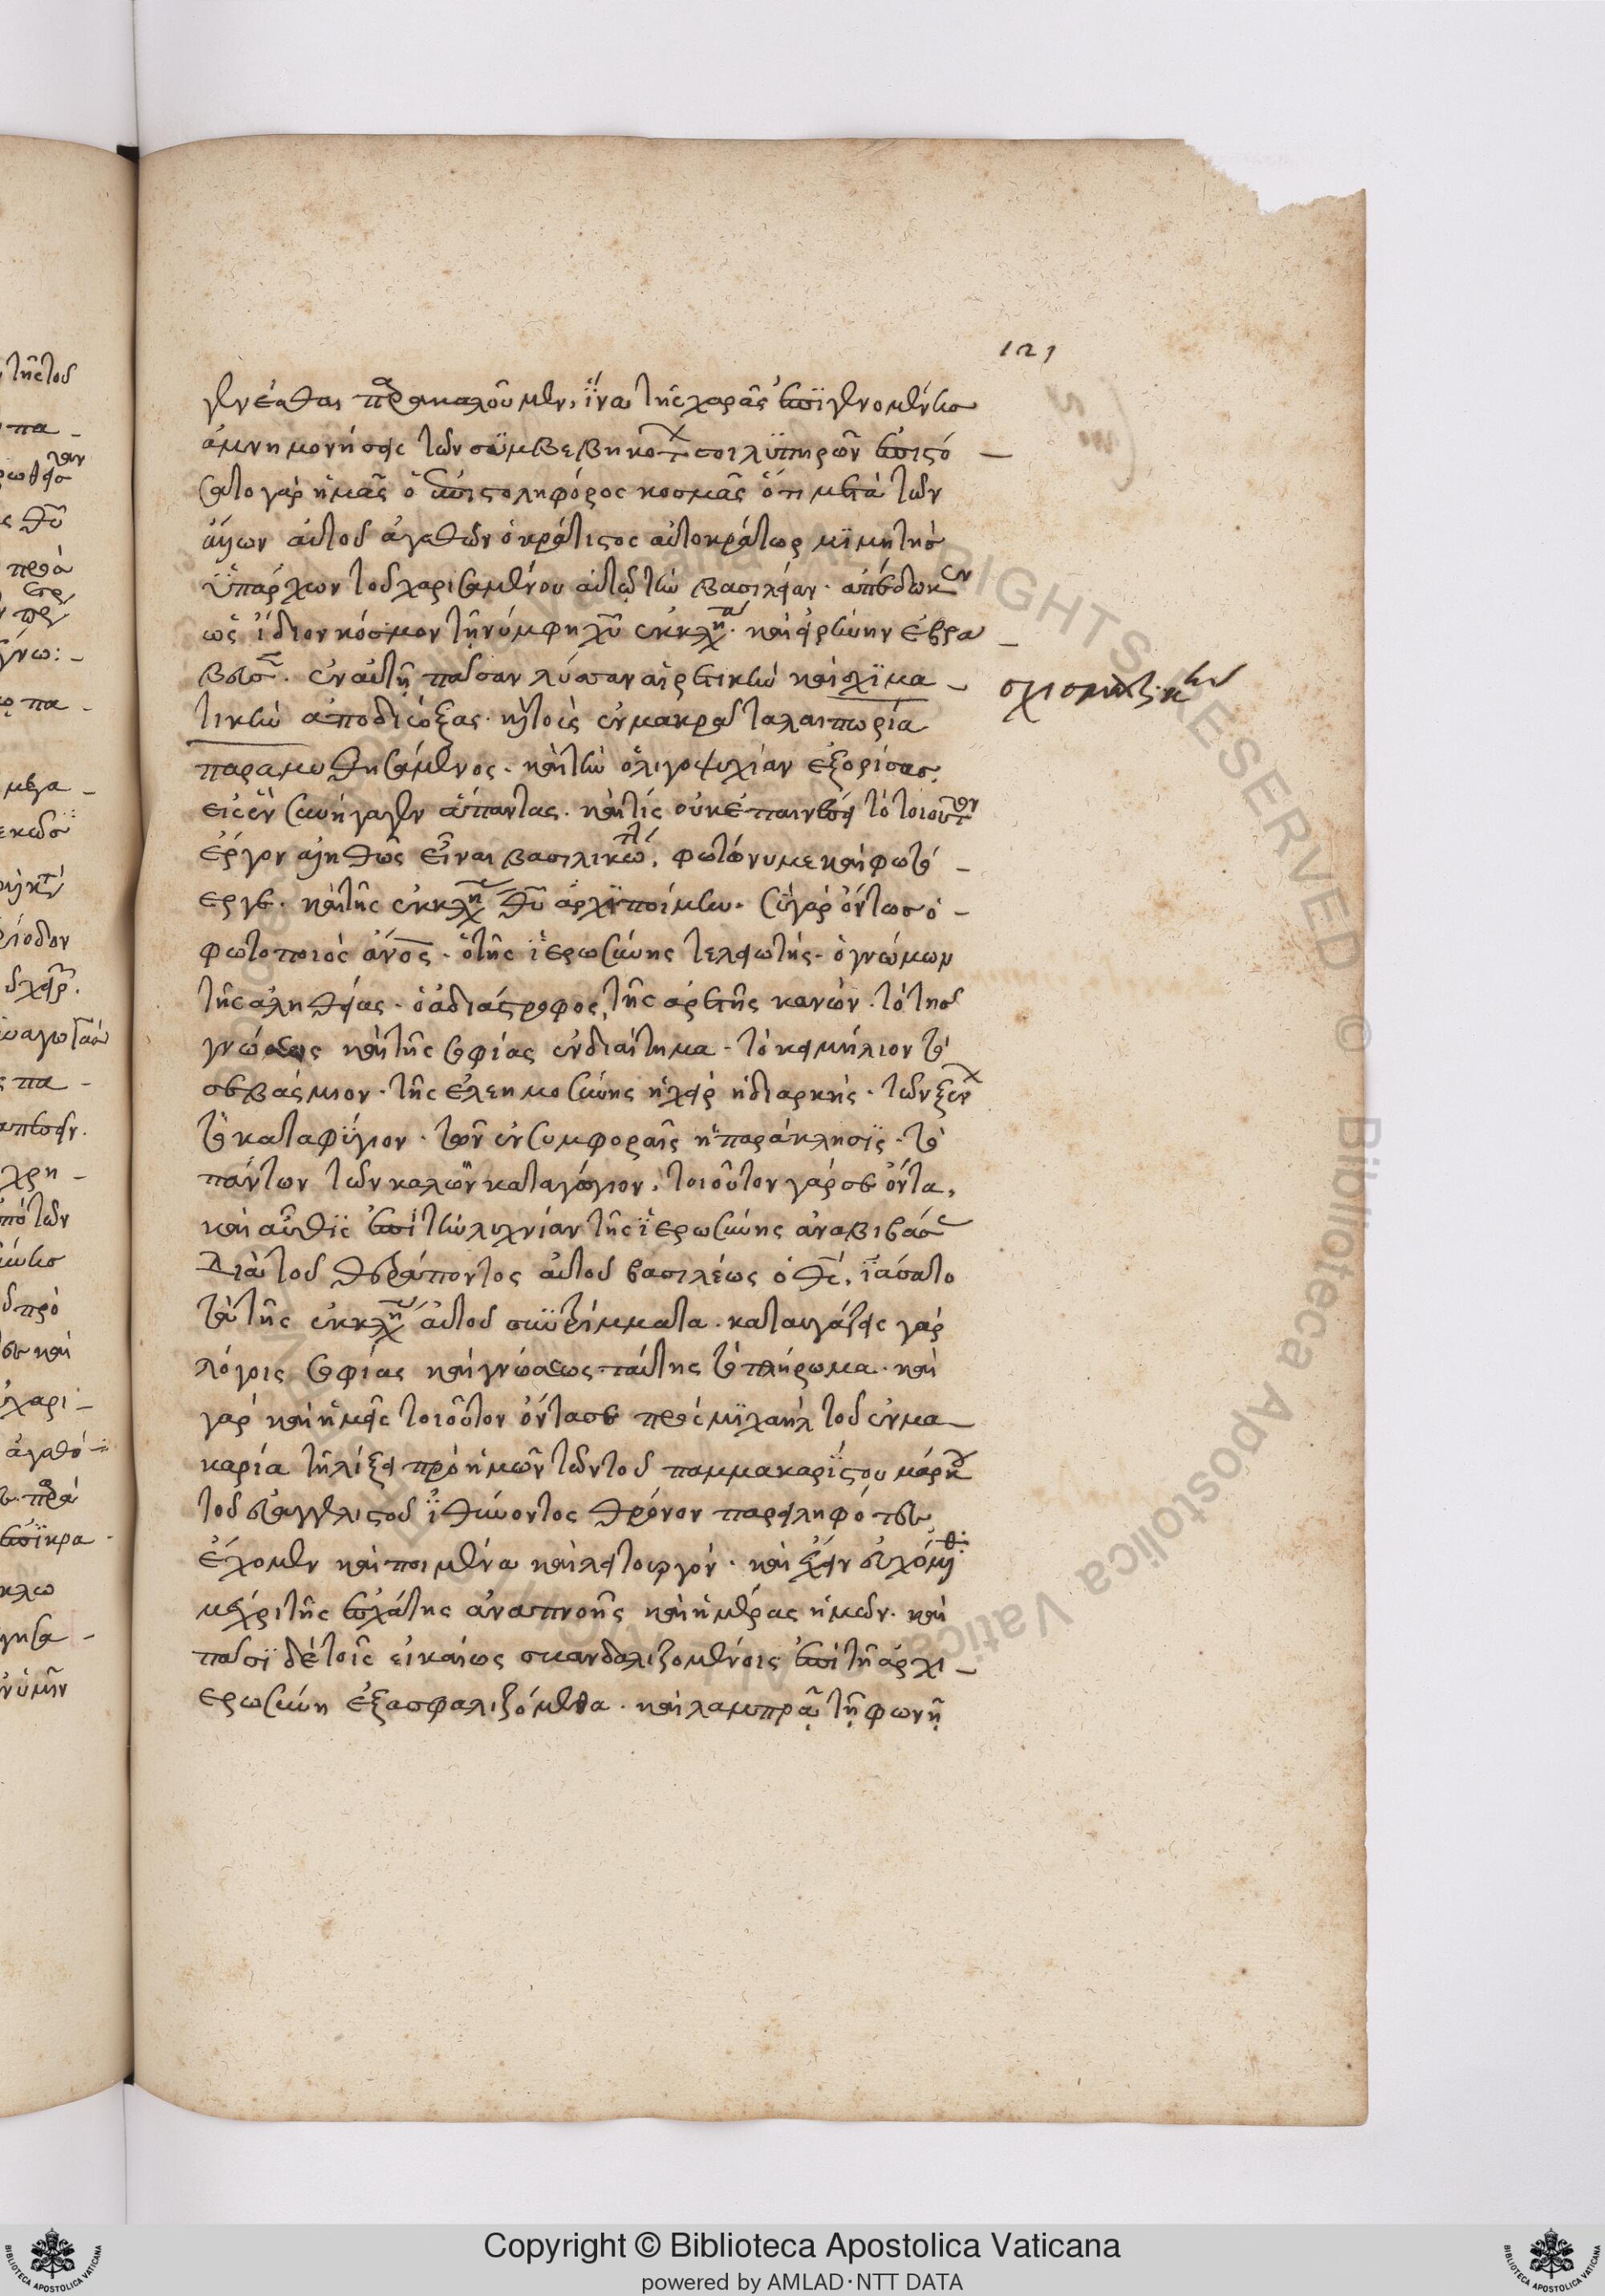 121
γενέσθαι παρακαλοῦμεν, ἵνα τῆς χαρᾶς ἐπιγενομένης
ἀμνημονήσῃς τῶν συμβεβηκότων σοι λυπηρῶν ἐπιστό
σατο γὰρ ἡμᾶς ὁ ἐπιστοληφόρος κοσμᾶς ὅτι μετὰ τῶν
ἄλλων αὐτοῦ ἀγαθῶν ὁ κράτιστος αὐτοκράτωρ μιμητὴς
ὑπάρχων τοῦ χαρισαμένου αὐτῷ τὴν βασιλείαν. ἀπέδωκεν
ὡς ἴδιον κόσμον τῇ νύμφῃ χυ ἐκκλησία. καὶ εἰρήνην ἐβρα
βευσεν. ἐν αὐτῇ πᾶσαν λύσσαν αἱρετικὴν καὶ σχιμα
τικὴν ἀποδιώξας. καὶ τοῖς ἐν μακρᾶ ταλαιπωρία
σχισματικὴν
παραμυθησάμενος. καὶ τὴν ὀλιγοψυχίαν ἐξορίσας,
εἰς ἓν συνήγαγεν ἅπαντας. καὶ τίς οὐκ ἐπαινέσει τὸ τοιοῦτον
ἔργον ἀληθῶς εἶναι βασιλικώτατον, φωτώνυμε καὶ φωτὸ
εργε. καὶ τῆς ἐκκλησίας θυ ἀρχιποίμην. σὺ γὰρ ὄντως ὁ
φωτοποιὸς ἀνος. ὁ τῆς ἱερωσύνης τελειωτής. ὁ γνώμων
τῆς ἀληθείας. ὁ ἀδιάστροφος τῆς ἀρετῆς κανών. τὸ τῆς
γνώσεως καὶ τῆς σοφίας ἐνδιαίτημα. τὸ κειμήλιον τὸ
σεβάσμιον. τῆς ἐλεημοσύνης ἡ χεὶρ ἡ διαρκής. τῶν ξένων
τὸ καταφύγιον. τῶν ἐν συμφοραῖς ἡ παράκλησις. τὸ
πάντων τῶν καλῶν καταγώγιον. τοιοῦτον γάρ σε ὄντα,
καὶ αὖθις ἐπὶ τὴν λυχνίαν τῆς ἱερωσύνης ἀναβιβάσας
Διὰ τοῦ θεράποντος αὐτοῦ βασιλέως ὁ θς, ἰάσατο
τὰ τῆς ἐκκλησίας αὐτοῦ συντρίμματα. καταυγάζεις γὰρ
λόγοις σοφίας καὶ γνώσεως ταύτης τὸ πλήρωμα. καὶ
γὰρ καὶ ἡμεῖς τοιοῦτον ὄντα σε πρὸς μιχαὴλ τοῦ ἐν μα
καρία τῇ λήξει πρὸ ἡμῶν τῶν τοῦ παμμακαρίστου μάρκου
τοῦ εὐαγγελιστοῦ ἰθύνοντος θρόνον παρειληφότες,
ἔχομεν καὶ ποιμένα καὶ λειτουργόν. καὶ ἔχειν εὐχόμεθα
μέχρι τῆς ἐσχάτης ἀναπνοῆς καὶ ἡμέρας ἡμῶν. καὶ
πᾶσι δὲ τοῖς εἰκαίως σκανδαλιζομένοις ἐπὶ τῇ ἀρχι
ερωσύνη ἐξασφαλιζόμεθα. καὶ λαμπρᾷ τῇ φωνῇ
Copyright © Biblioteca Apostolica Vaticana
powered by AMLAD·NTT DATA